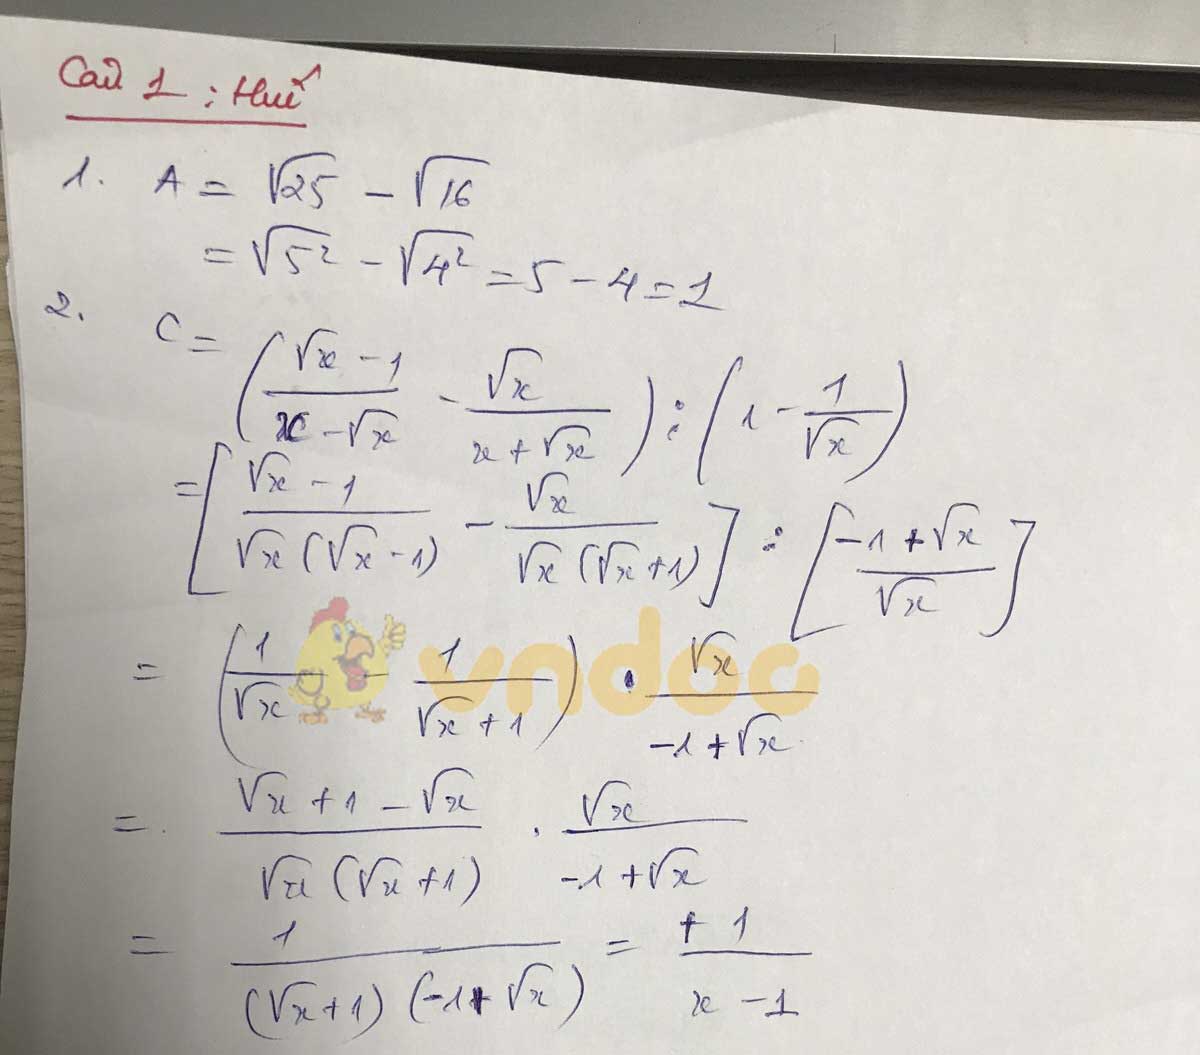 Câu 1 : Huế
1. A = √25 - √16
= √5² - √4² = 5 - 4 = 1
2. C = ( (√x - 1)/(x - √x) - √x/(x + √x) ) : ( 1 - 1/√x )
= [ (√x - 1)/(√x (√x - 1)) - √x/(√x (√x + 1)) ] : [ (-1 + √x)/√x ]
= ( 1/√x - 1/(√x + 1) ) . √x/(-1 + √x)
vndoc
= (√x + 1 - √x)/(√x (√x + 1)) . √x/(-1 + √x)
= 1/((√x + 1) (-1 + √x)) = +1/(x - 1)